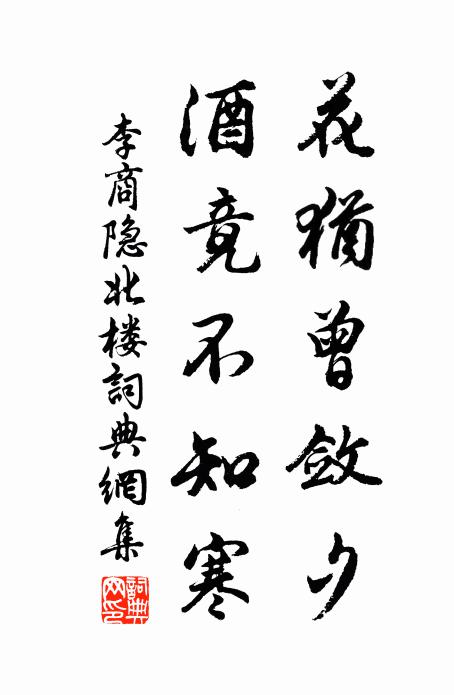 花猶曾斂夕
酒竟不知寒
李商隐北楼詞典網集
詞典网印